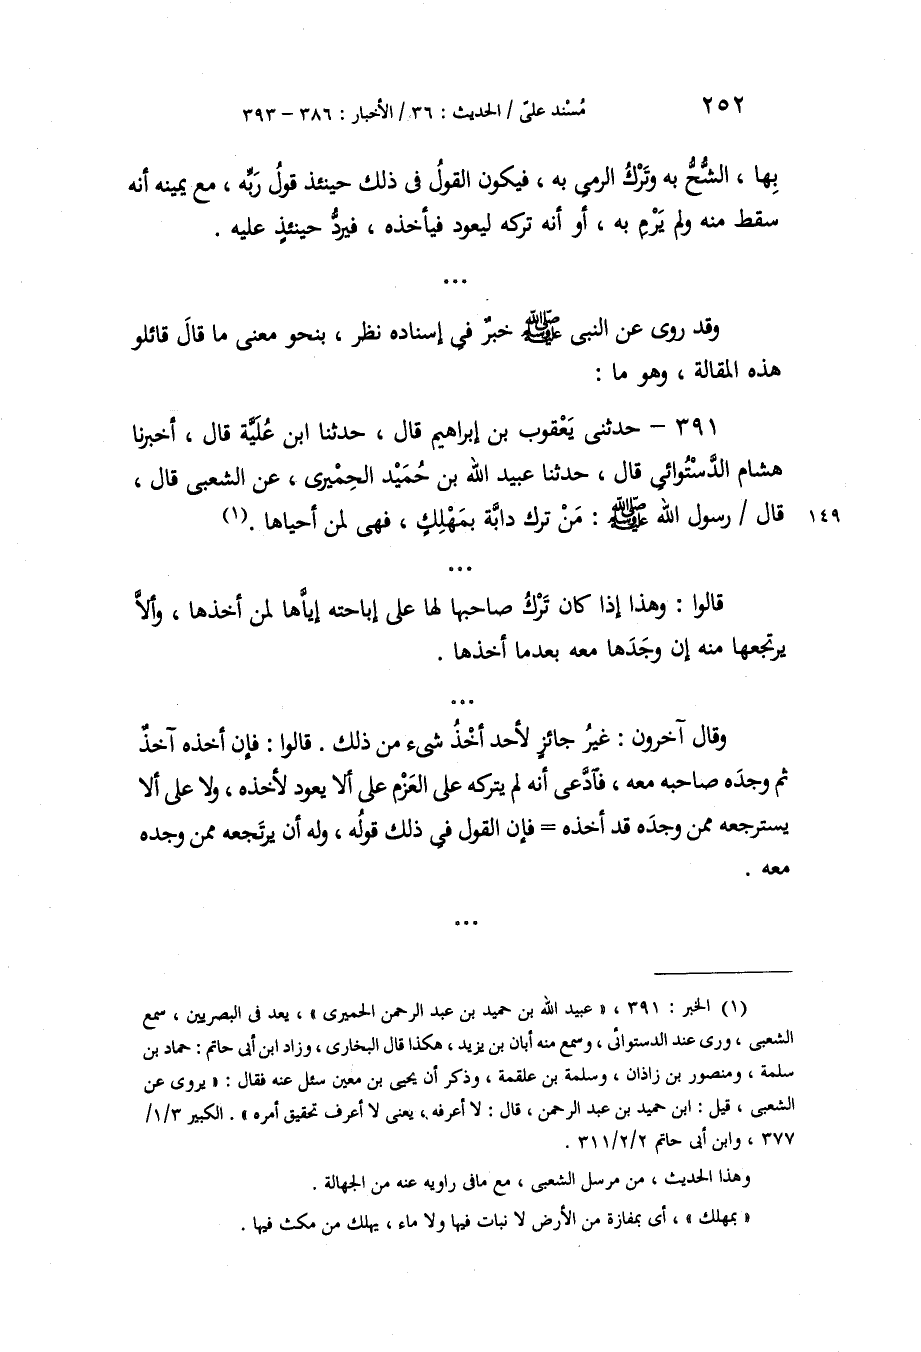 ٢٥٢ مُسْند علىّ / الحديث : ٣٦ / الأخبار : ٣٨٦ – ٣٩٣
بِها ، الشُّحُّ به وتَرْكُ الرمي به ، فيكون القولُ فى ذلك حينئذ قولُ رَبِّه ، مع يمينه أنه
سقط منه ولم يَرْمِ به ، أو أنه تركه ليعود فيأخذه ، فيردُّ حينئذٍ عليه .
...
وقد روى عن النبى ﷺ خبرٌ في إسناده نظر ، بنحو معنى ما قالَ قائلو
هذه المقالة ، وهو ما :
٣٩١ – حدثنى يَعْقوب بن إبراهيم قال ، حدثنا ابن عُلَيَّة قال ، أخبرنا
هشام الدَّسْتُوائي قال ، حدثنا عبيد الله بن حُمَيْد الحِمْيرى ، عن الشعبى قال ،
قال / رسول الله ﷺ : مَنْ ترك دابَّة بمَهْلِكٍ ، فهى لمن أحياها .(١) ١٤٩
...
قالوا : وهذا إذا كان تَرْكُ صاحبها لها على إباحته إياَّها لمن أخذها ، وألاَّ
يرتجعها منه إن وجَدَها معه بعدما أخذها .
...
وقال آخرون : غيرُ جائزٍ لأحد أخْذُ شىء من ذلك . قالوا : فإن أخذه آخذٌ
ثم وجدَه صاحبه معه ، فآدَّعى أنه لم يتركه على العَزْم على ألا يعود لأخذه ، ولا على ألا
يسترجعه ممن وجدَه قد أخذه = فإن القول في ذلك قولُه ، وله أن يرتَجعه ممن وجده
معه .
...
(١) الخبر : ٣٩١ ، « عبيد الله بن حميد بن عبد الرحمن الحميرى » ، يعد فى البصريين ، سمع
الشعبى ، وروى عند الدستوائى ، وسمع منه أبان بن يزيد ، هكذا قال البخارى ، وزاد ابن أبى حاتم : حماد بن
سلمة ، ومنصور بن زاذان ، وسلمة بن علقمة ، وذكر أن يحيى بن معين سئل عنه فقال : « يروى عن
الشعبى ، قيل : ابن حميد بن عبد الرحمن ، قال : لا أعرفه ، يعنى لا أعرف تحقيق أمره » . الكبير ٣/١/
٣٧٧ ، وابن أبى حاتم ٣١١/٢/٢ .
وهذا الحديث ، من مرسل الشعبى ، مع مافى راويه عنه من الجهالة .
« بمهلك » ، أى بمفازة من الأرض لا نبات فيها ولا ماء ، يهلك من مكث فيها .